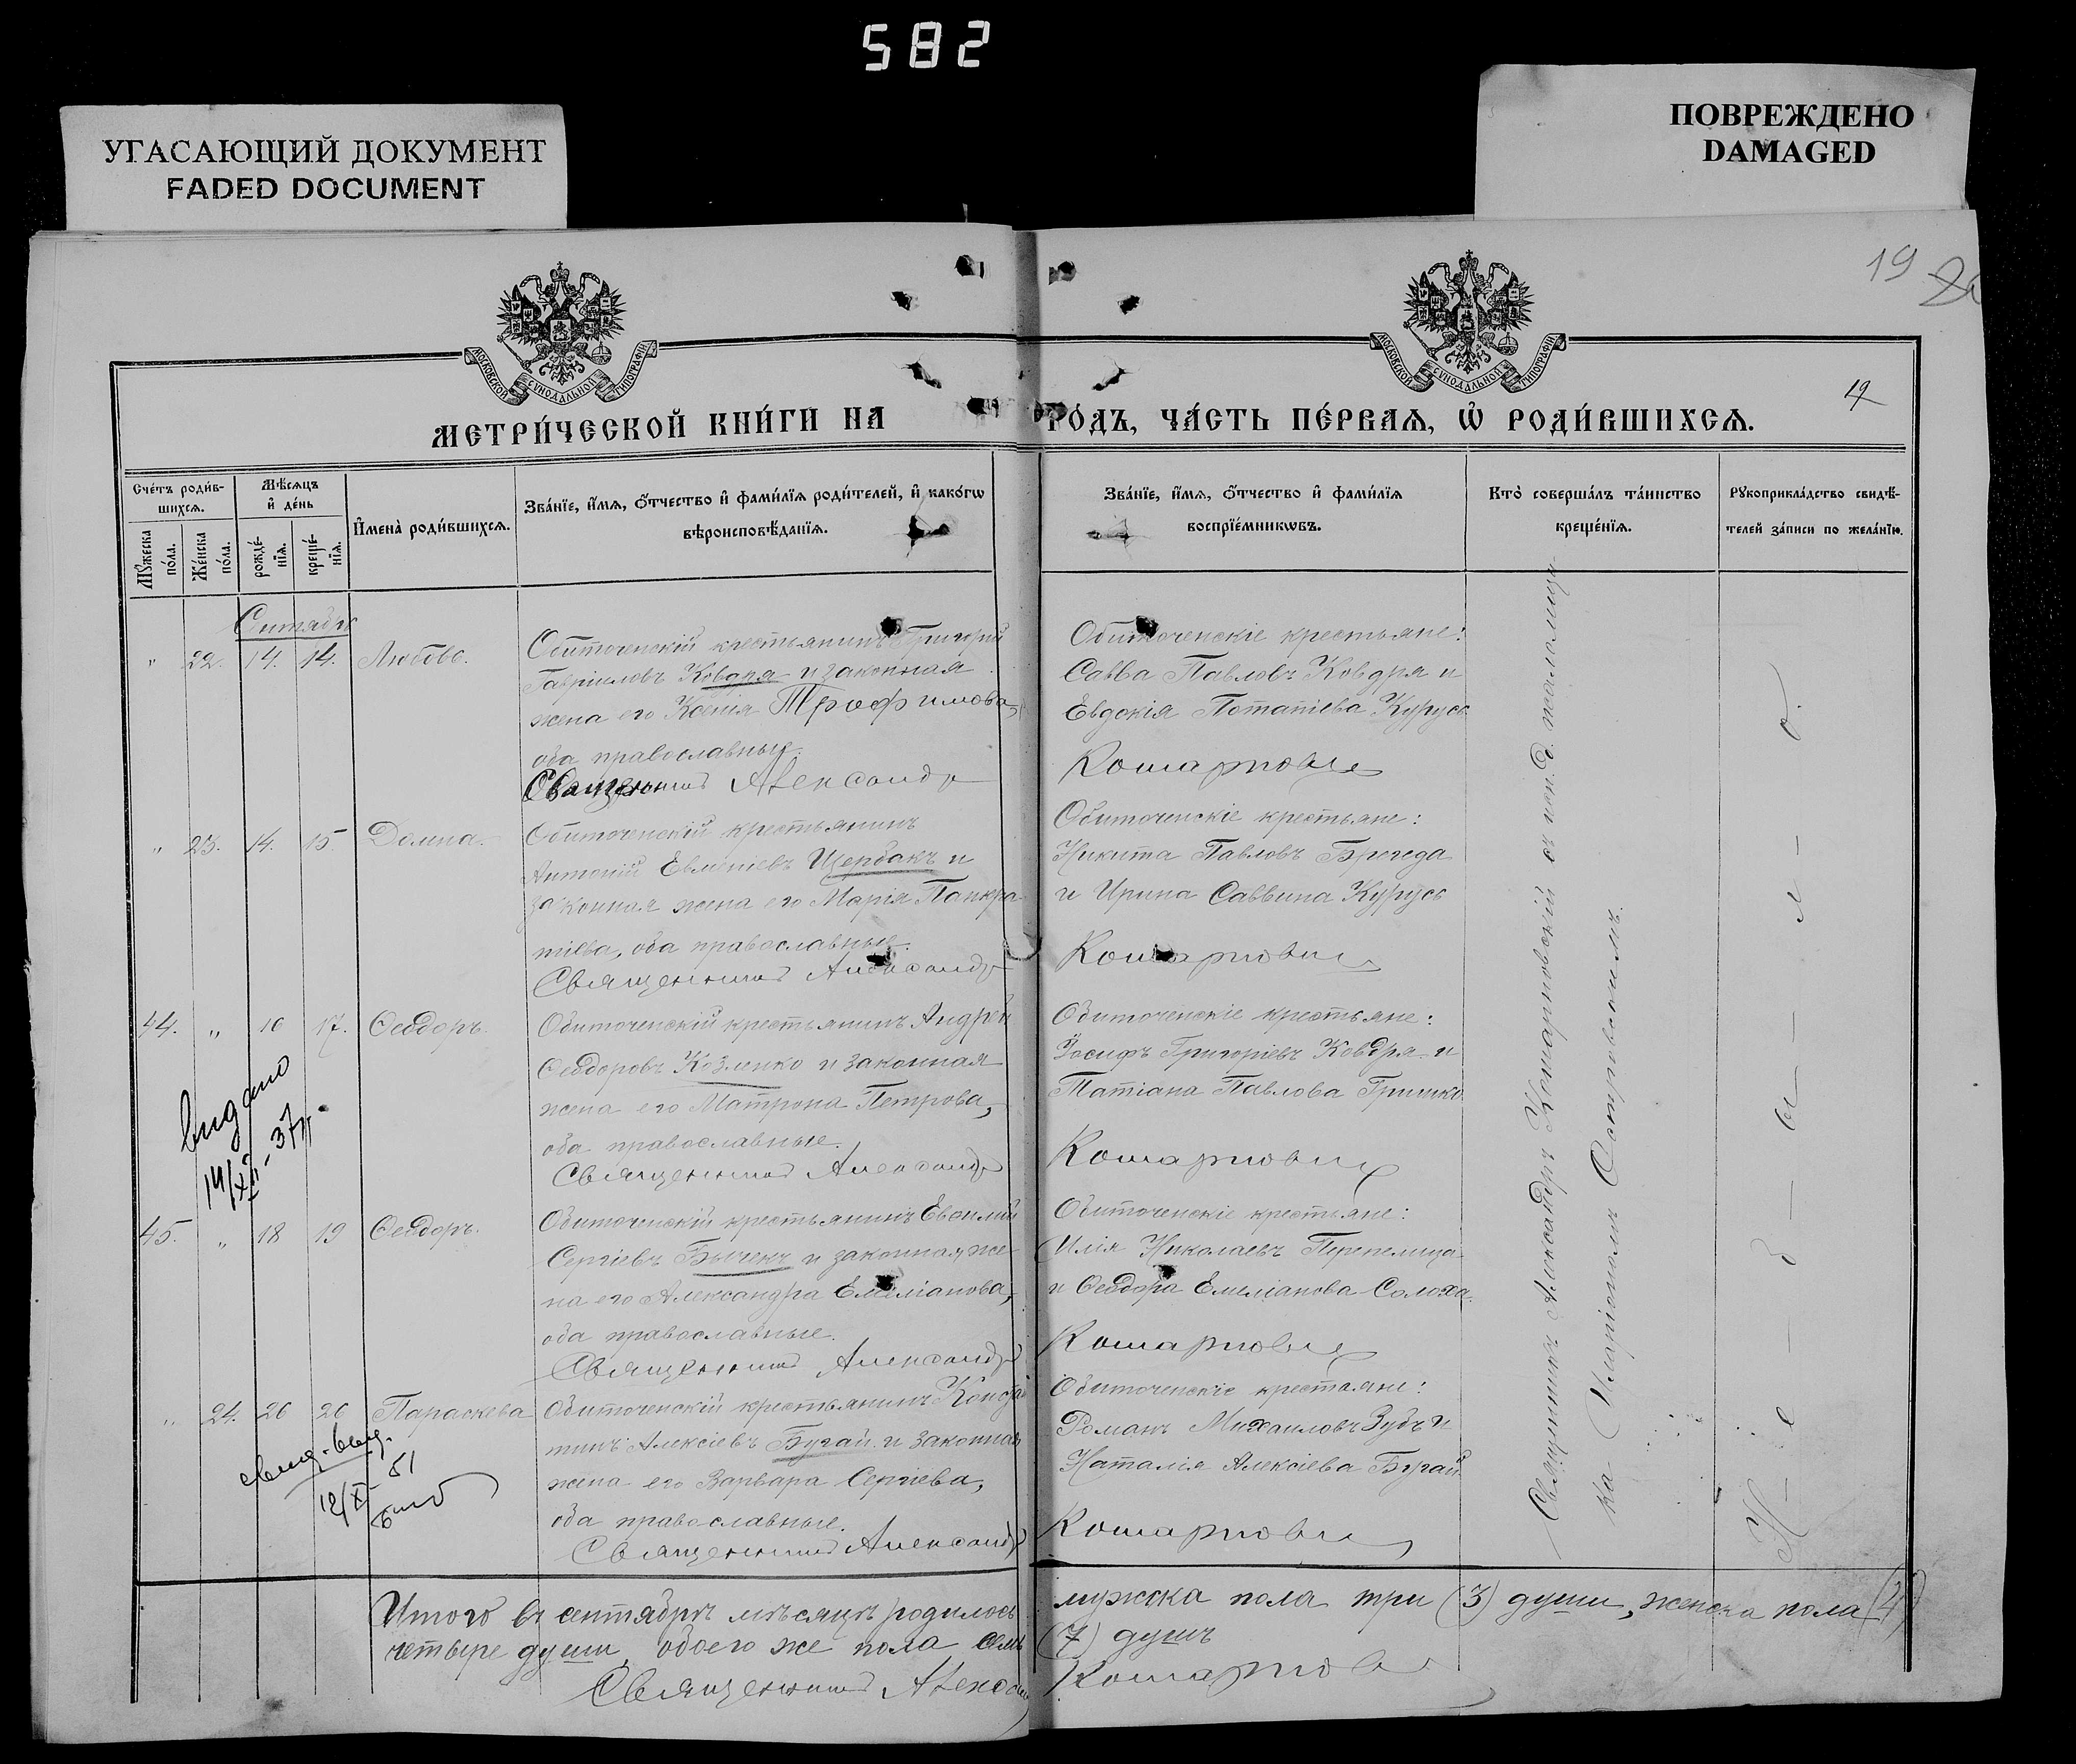 582
УГАСАЮЩИЙ ДОКУМЕНТ
FADED DOCUMENT
ПОВРЕЖДЕНО
DAMAGED
19
МОСКОВСКОЙ СѴНОДАЛЬНОЙ ТИПОГРАФІИ
МОСКОВСКОЙ СѴНОДАЛЬНОЙ ТИПОГРАФІИ
19
МЕТРИ́ЧЕСКОЙ КНИ́ГИ НА
РО́ДЪ, ЧА́СТЬ ПЕ́РВАѦ, Ѡ҆ РОДИ́ВШИХСѦ.
Сче́тъ роди́в-
шихсѧ.
Мꙋ́жеска по́ла.
Же́нска по́ла.
Мѣ́сѧцъ
и҆ де́нь
рожде́-нїѧ.
креще́-нїѧ.
И҆мена̀ роди́вшихсѧ.
Зва́нїе, и҆́мѧ, ѻ҆́тчество и҆ фами́лїѧ роди́телей, и҆ како́гѡ
вѣроисповѣ́данїѧ.
Зва́нїе, и҆́мѧ, ѻ҆́тчество и҆ фами́лїѧ
воспрїе́мникѡвъ.
Кто̀ соверша́лъ та́инство
креще́нїѧ.
Рꙋкоприкла́дство свидѣ́-
телей за́писи по жела́нїю.
Сентябрь
" 22. 14. 14. Любовь.
Обиточенскій крестьянинъ Григорій
Гавриловъ Ковдря и законная
жена его Ксенія Трофимова,
оба православные.
Священникъ Александръ
Обиточенскіе крестьяне:
Савва Павловъ Ковдря и
Евдокія Потапіева Курусь
Комарновскі
" 23. 14. 15 Домна.
Обиточенскій крестьянинъ
Антоній Евменіевъ Щербакъ и
законная жена его Марія Панкра-
тіева, оба православные.
Священникъ Александръ
Обиточенскіе крестьяне:
Никита Павловъ
и Ирина Саввина Курусь
Комарновскі
44. " 16 17. Ѳеодоръ.
Обиточенскій крестьянинъ Андрей
Ѳеодоровъ Козленко и законная
жена его Матрона Петрова,
оба православные.
Священникъ Александръ
Обиточенскіе крестьяне:
Іосифъ Григоріевъ Ковдря и
Татіана Павлова Гришко
Комарновскі
видано
14/XII-37р.
45. " 18 19 Ѳеодоръ.
Обиточенскій крестьянинъ
Сергіевъ Бычекъ и законная же-
на его Александра Емеліанова,
оба православные.
Священникъ Александръ
Обиточенскіе крестьяне:
Илія Николаевъ Перепелица
и Ѳеодора Емеліанова Солоха.
Комарновскі
" 24. 26 26 Параскева
Обиточенскій крестьянинъ Констан
тинъ Алексіевъ Бугай и законная
жена его Варвара Сергіева,
оба православные.
Священникъ Александръ
Обиточенскіе крестьяне:
Романъ Михаиловъ Зубъ и
Наталія Алексіева Бугай.
Комарновскі
12/XI 51
Священникъ Александръ Комарновскій съ исп. д. псаломщи-
ка Иларіономъ Островскимъ.
Н - е - б - ы - л - о.
Итого въ сентябрѣ мѣсяцѣ родилось мужска пола три (3) души, женска пола (4)
четыре души, обоего же пола семь (7) душъ
Священникъ Александръ Комарнов